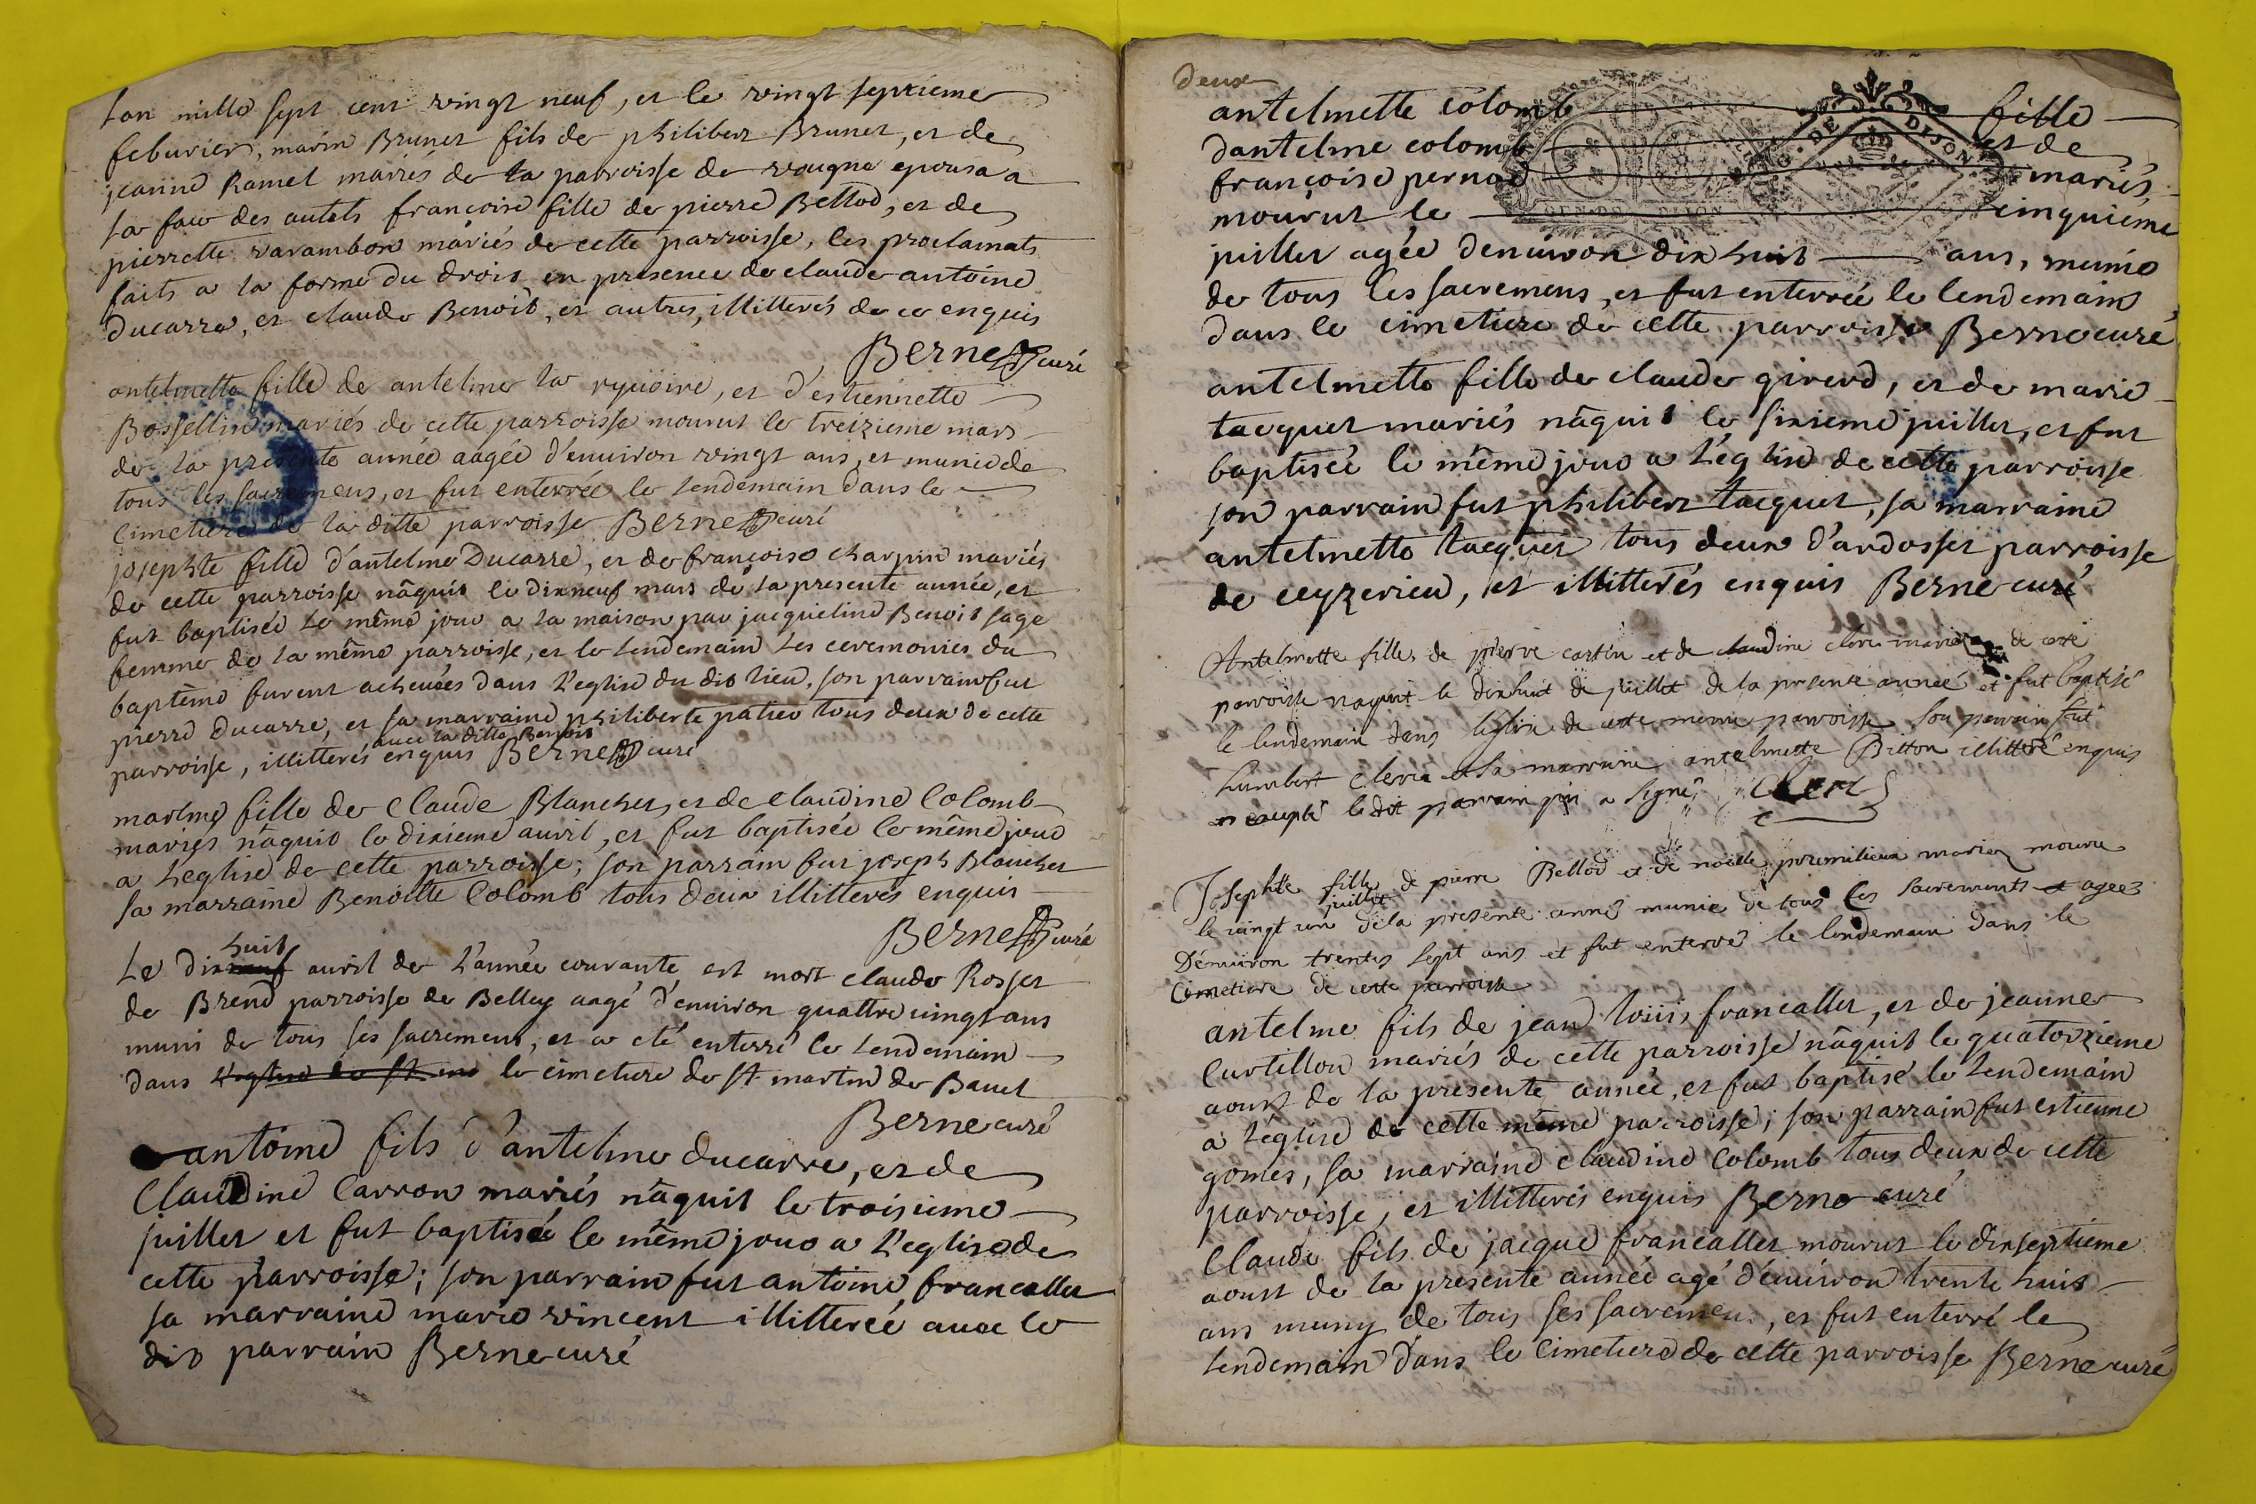 Lan mille sept cent vingt neuf, et le vingt septieme
feburier, marin Brunet fils de philibert Brunet, et de
jeanne Ramel mariés de la parroisse de vougna epousa a
la face des autels françoise fille de pierre Bellod, et de
pierrette varambon mariés de cette parroisse, les proclamats
faits a la forme du droit en presence de claude antoine
Ducarre, et claude Benoit, et autres, illitterés de ce enquis
Berne curé
antelmette fille de antelme la ryuoire, et d'estiennette
Bossellin mariés de cette parroisse mourut le treizieme mars
de la presente année aagée d'enuiron vingt ans, et munie de
tous les sacremens, et fut enterrée le lendemain dans le
Cimetiere de la ditte parroisse Berne curé
josephte fille d'antelme Ducarre, et de françoise charpin mariés
de cette parroisse nâquit le dixneuf mars de la presente année, et
fut baptisée le même jour a la maison par jacqueline Benoit sage
femme de la même parroisse, et le lendemain les ceremonies du
baptême furent acheuées dans l'eglise du dit lieu, son parrain fut
pierre Ducarre, et sa marraine philiberte patier tous deux de cette
auec la ditte Benoit
parroisse, illitterés enquis Berne curé
marine fille de Claude Blanchet, et de Claudine Colomb
mariés nâquit le dixieme auril, et fut baptisée le même jour
a l'eglise de cette parroisse; son parrain fut joseph Blanchet
sa marraine Benoitte Colomb tous deux illitterés enquis
Berne curé
huit
Le dix neuf auril de l'année courante est mort claude Rosset
de Brend parroisse de Belley aagé d'enuiron quattre uingt ans
muni de tous ses sacremens, et a eté enterré le lendemain
dans l'eglise de st le cimetiere de st martin de Bauel
Berne curé
antoine fils d'antelme ducarre, et de
Claudine Carron mariés nâquit le troisieme
juillet et fut baptisé le même jour a l'eglise de
cette parroisse; son parrain fut antoine francallet
sa marraine marie vincent illitterée auec le
dit parrain Berne curé
deux
antelmette colomb fille
dantelme colomb et de
françoise pernod mariés
mourut le cinquiéme
GEN. DE DIJON
juillet agée denuiron dix huit ans, munie
de tous les sacremens, et fut enterrée le lendemain
dans le cimetiere de cette parroisse Berne curé
antelmette fille de claude girerd, et de marie
tacquet mariés nâquit le sixieme juillet, et fut
baptisée le même jour a l'église de cette parroisse
son parrain fut philibert tacquet, sa marraine
antelmette tacquet tous deux d'ardosset parroisse
de ceyzerieu, et illitterés enquis Berne curé
Antelmette fille de pierre cartin et de claudine clerc mariez de cette
parroisse naquit le dixhuit de juillet de la presente année et fut baptisé
le lendemain dans leglise de cette meme parroisse son parrain fut
humbert Clerc et la marraine antelmette Bitton illitteré enquis
excepté ledit parrain qui a signé Clerc
Josephte fille de pierre Bellod et de noëlle premilieux mariez mourut
juillet
le vingt un dela presente année munie de tous les sacrements et agee
Démuiron trentes sept ans et fut enterré le lendemain dans le
Cimetiere de cette parroisse
antelme fils de jean loüis francallet, et de jeanne
Curtillon mariés de cette parroisse nâquit le quatorzieme
aoust de la presente année, et fut baptisé le lendemain
a l'église de cette même parroisse; son parrain fut estienne
gomes, sa marraine claudine Colomb tous deux de cette
parroisse, et illitterés enquis Berne curé
Claude fils de jacque francallet mourut le dixseptieme
aoust de la presente année agé d'enuiron trente huit
ans muny de tous ses sacremen., et fut enterré le
lendemain dans le Cimetiere de cette parroisse Berne curé